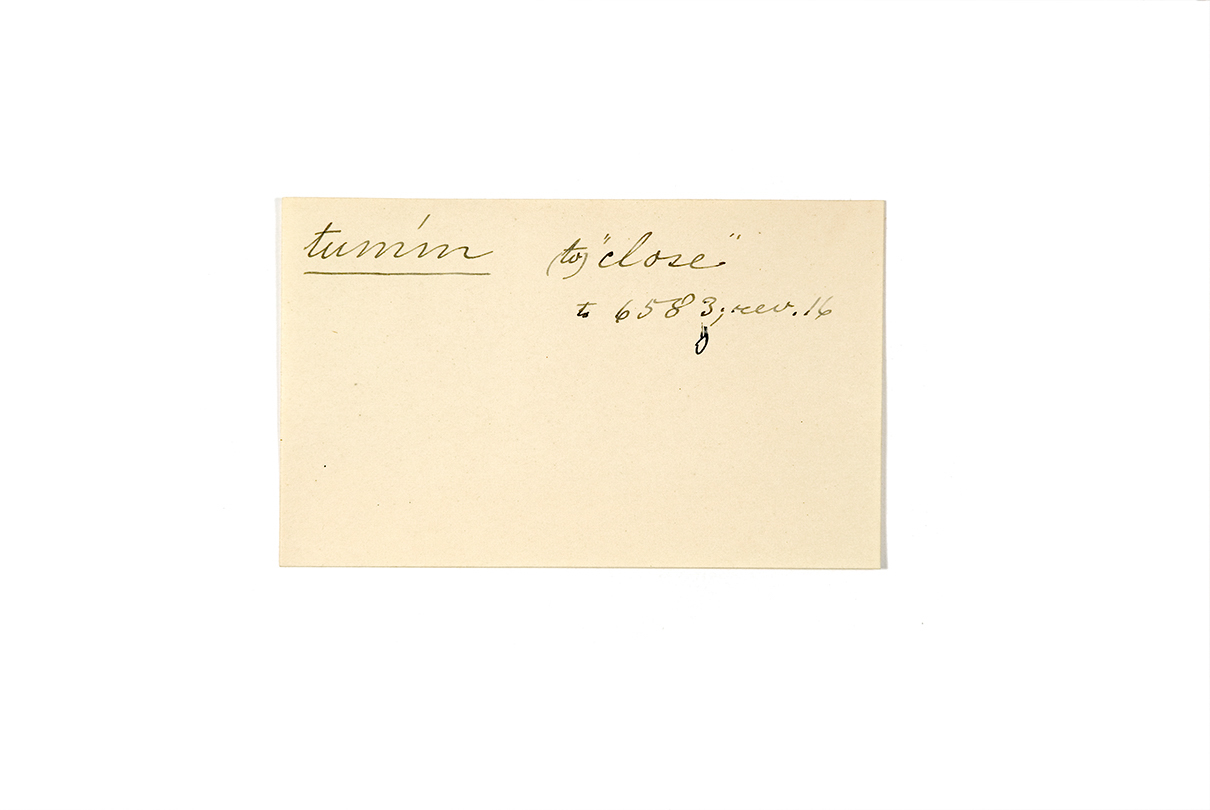 tumím (to) "close"
t. 6583; rev. 16